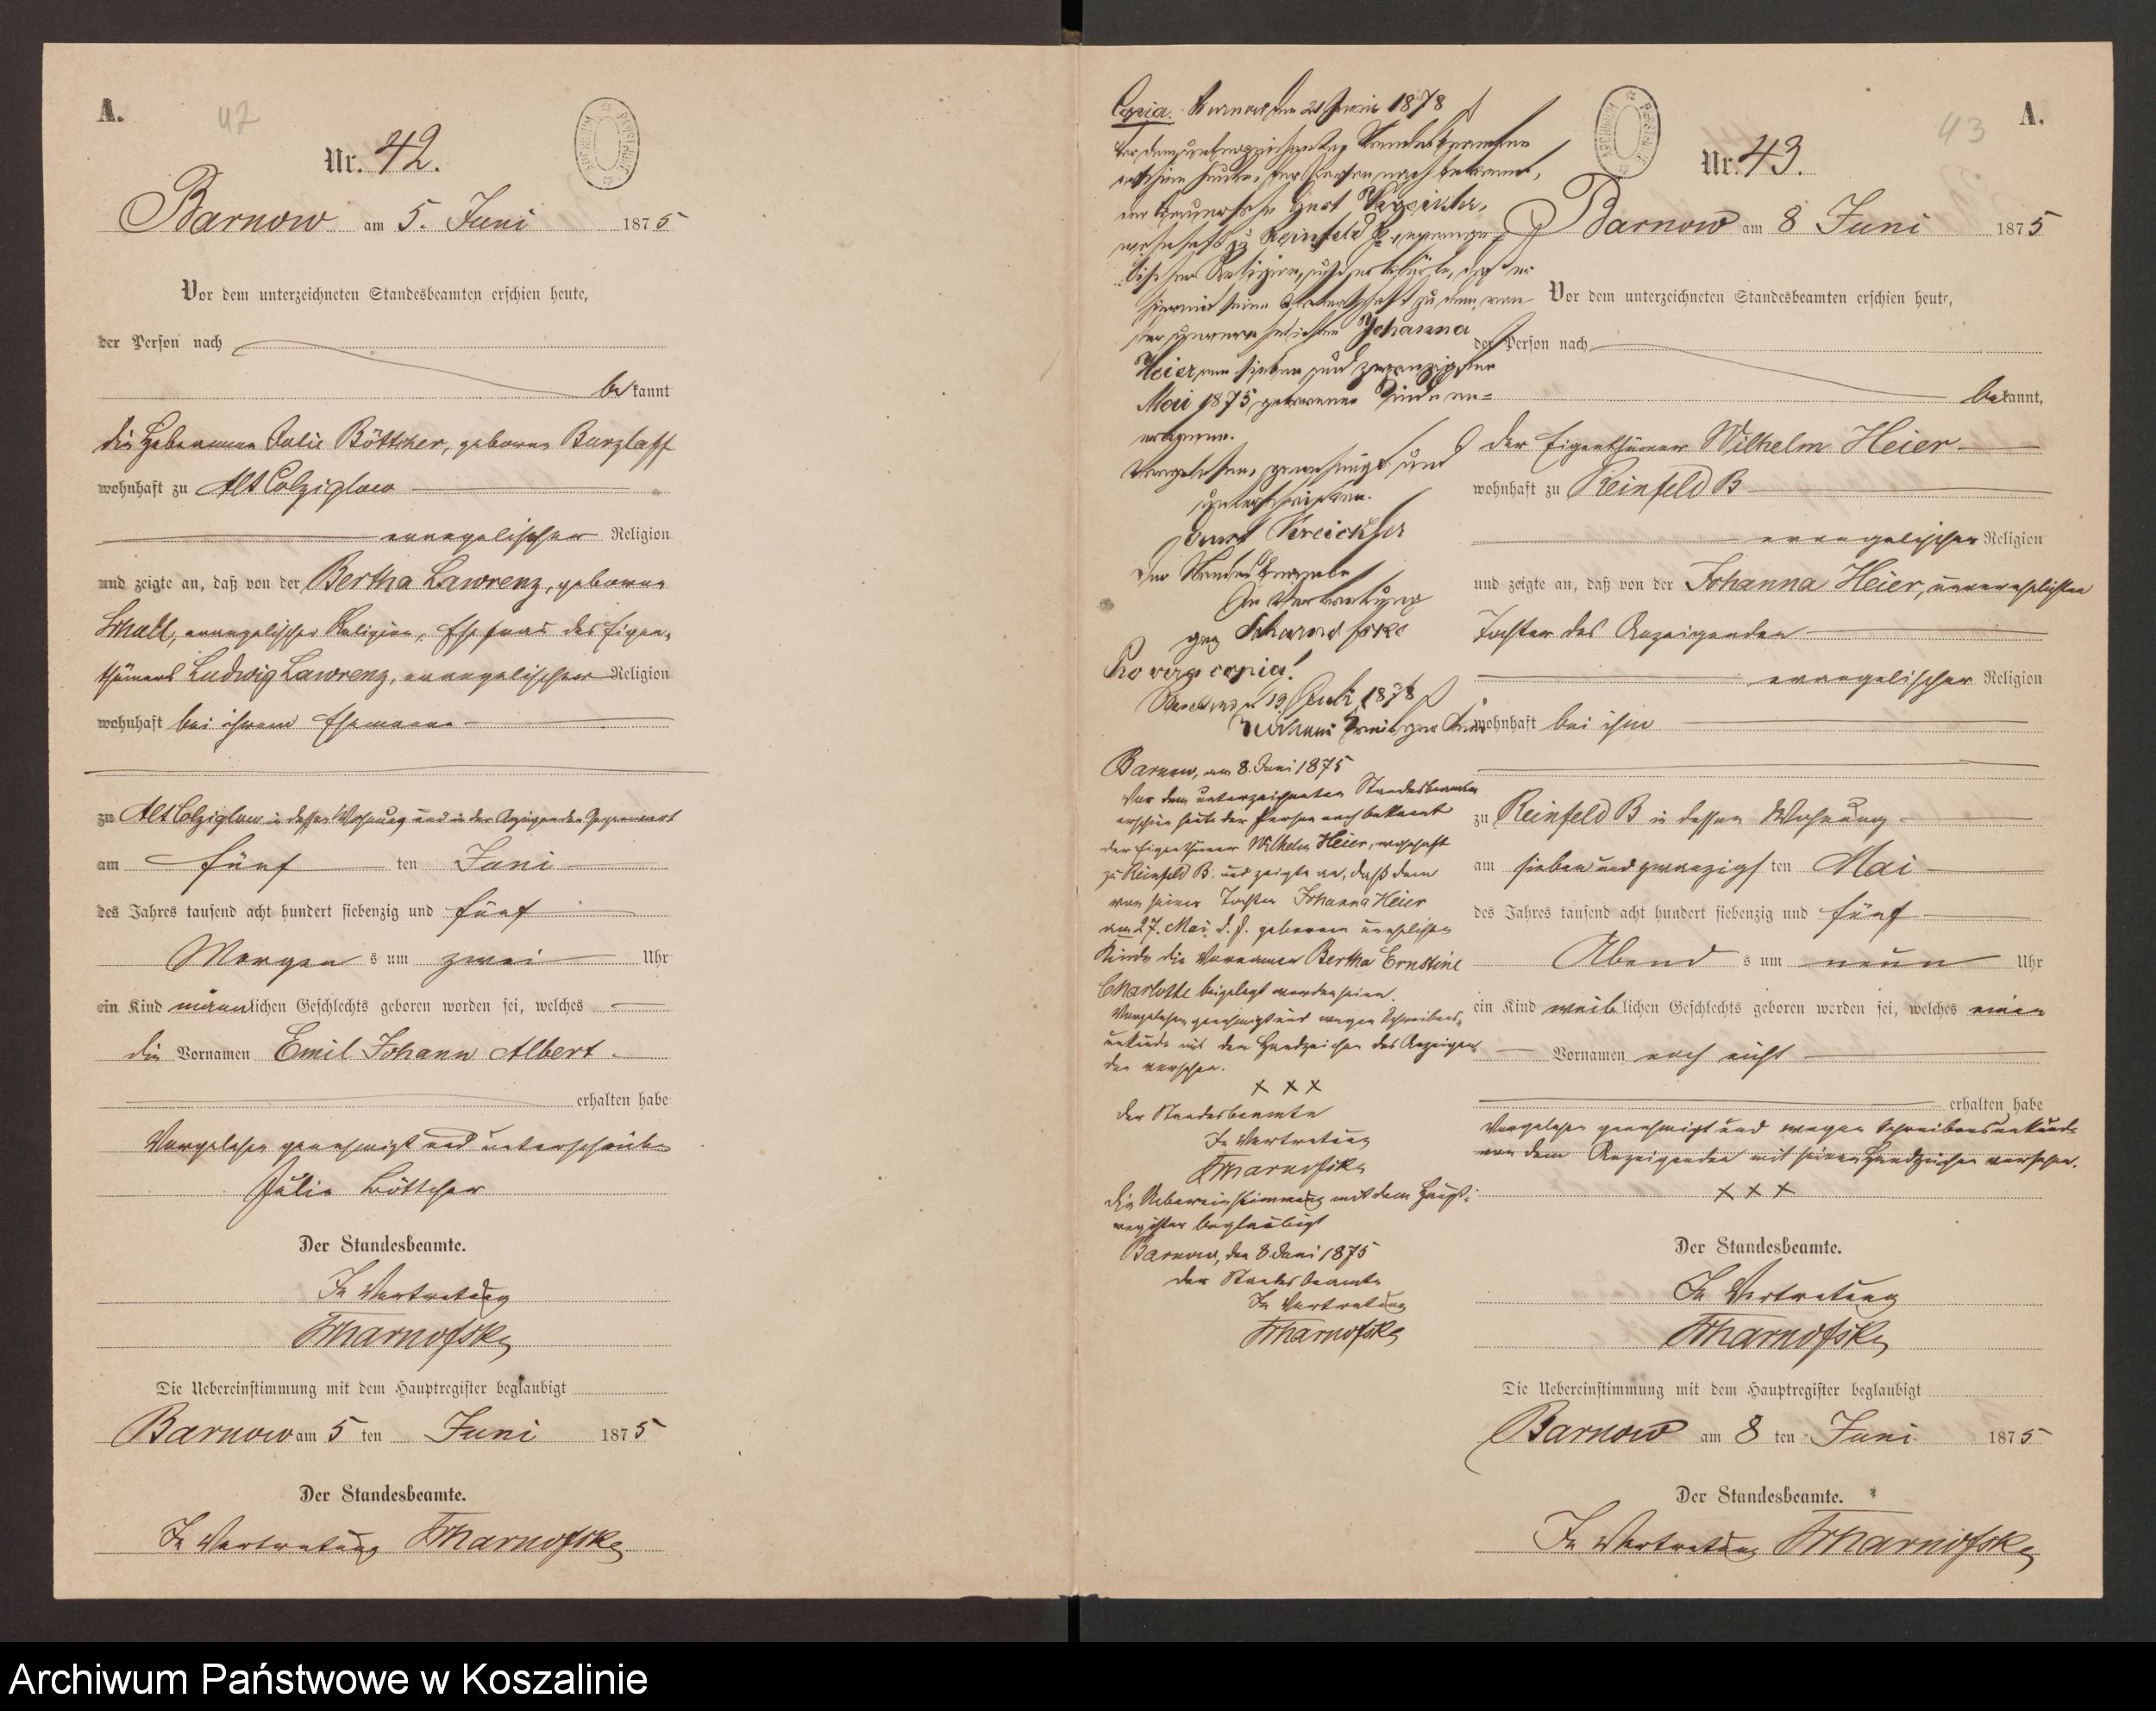 A.
42
Nr. 42.
Barnow am 5. Juni 1875
Vor dem unterzeichneten Standesbeamten erschien heute,
der Person nach
bekannt
die Hebamme Julie Böttcher, geborene Burzlaff
wohnhaft zu Alt Colziglow
evangelischer Religion
und zeigte an, daß von der Bertha Lawrenz, geborene
evangelischer Religion, Ehefrau des Eigen-
thümers Ludwig Lawrenz, evangelischer Religion
wohnhaft bei ihrem Ehemanne
zu Alt Colziglow in dessen Wohnung und in der Anzeigenden Gegenwart
am fünf ten Juni
des Jahres tausend acht hundert siebenzig und fünf
Morgens um zwei Uhr
ein Kind männlichen Geschlechts geboren worden sei, welches
die Vornamen Emil Johann Albert
erhalten habe
Vorgelesen genehmigt und unterschrieben
Julie Böttcher
Der Standesbeamte.
In Vertretung
Die Uebereinstimmung mit dem Hauptregister beglaubigt
Barnow am 5 ten Juni 1875
Der Standesbeamte.
In Vertretung
Copia. Barnow den 1878
Vor dem unterzeichneten Standesbeamten
erschien heute, der Person nach bekannt,
der
wohnhaft zu Reinfeld B, evange-
lischer Religion, und erklärte, daß er
hiermit seine Vaterschaft zu dem, von
der unverehelichten Johanna
Heier am sieben und zwanzigsten
Mai 1875 geborenen Kinde an-
erkenne.
Vorgelesen, genehmigt und
unterschrieben.
Der Standesbeamte
In Vertretung
gez
Pro vera copia!
1878
Barnow, am 8. Juni 1875
Vor dem unterzeichneten Standesbeamten
erschien heute der Person nach bekannt
der Eigenthümer Wilhelm Heier, wohnhaft
zu Reinfeld B. und zeigte an, daß dem
von seiner Tochter Johanna Heier
am 27. Mai d. J. geborenen unehelichen
Kinde die Vornamen Bertha Ernstine
Charlotte beigelegt worden seien.
Vorgelesen genehmigt und wegen Schreibens-
unkunde mit den Handzeichen des Anzeigen-
den versehen.
x x x
Der Standesbeamte
In Vertretung
Die Uebereinstimmung mit dem Haupt-
register beglaubigt
Barnow, den 8 Juni 1875
Der Standesbeamte
In Vertretung
A.
43
Nr. 43.
Barnow am 8 Juni 1875
Vor dem unterzeichneten Standesbeamten erschien heute,
der Person nach
bekannt,
der Eigenthümer Wilhelm Heier
wohnhaft zu Reinfeld B
evangelischer Religion
und zeigte an, daß von der Johanna Heier, unverehelichten
Tochter des Anzeigenden
evangelischer Religion
wohnhaft bei ihm
zu Reinfeld B in dessen Wohnung
am sieben und zwanzigsten Mai
des Jahres tausend acht hundert siebenzig und fünf
Abends um neun Uhr
ein Kind weiblichen Geschlechts geboren worden sei, welches einen
Vornamen noch nicht
erhalten habe
Vorgelesen genehmigt und wegen Schreibensunkunde
von dem Anzeigenden mit seinem Handzeichen versehen.
x x x
Der Standesbeamte.
In Vertretung
Die Uebereinstimmung mit dem Hauptregister beglaubigt
Barnow am 8 ten Juni 1875
Der Standesbeamte.
In Vertretung
Archiwum Państwowe w Koszalinie